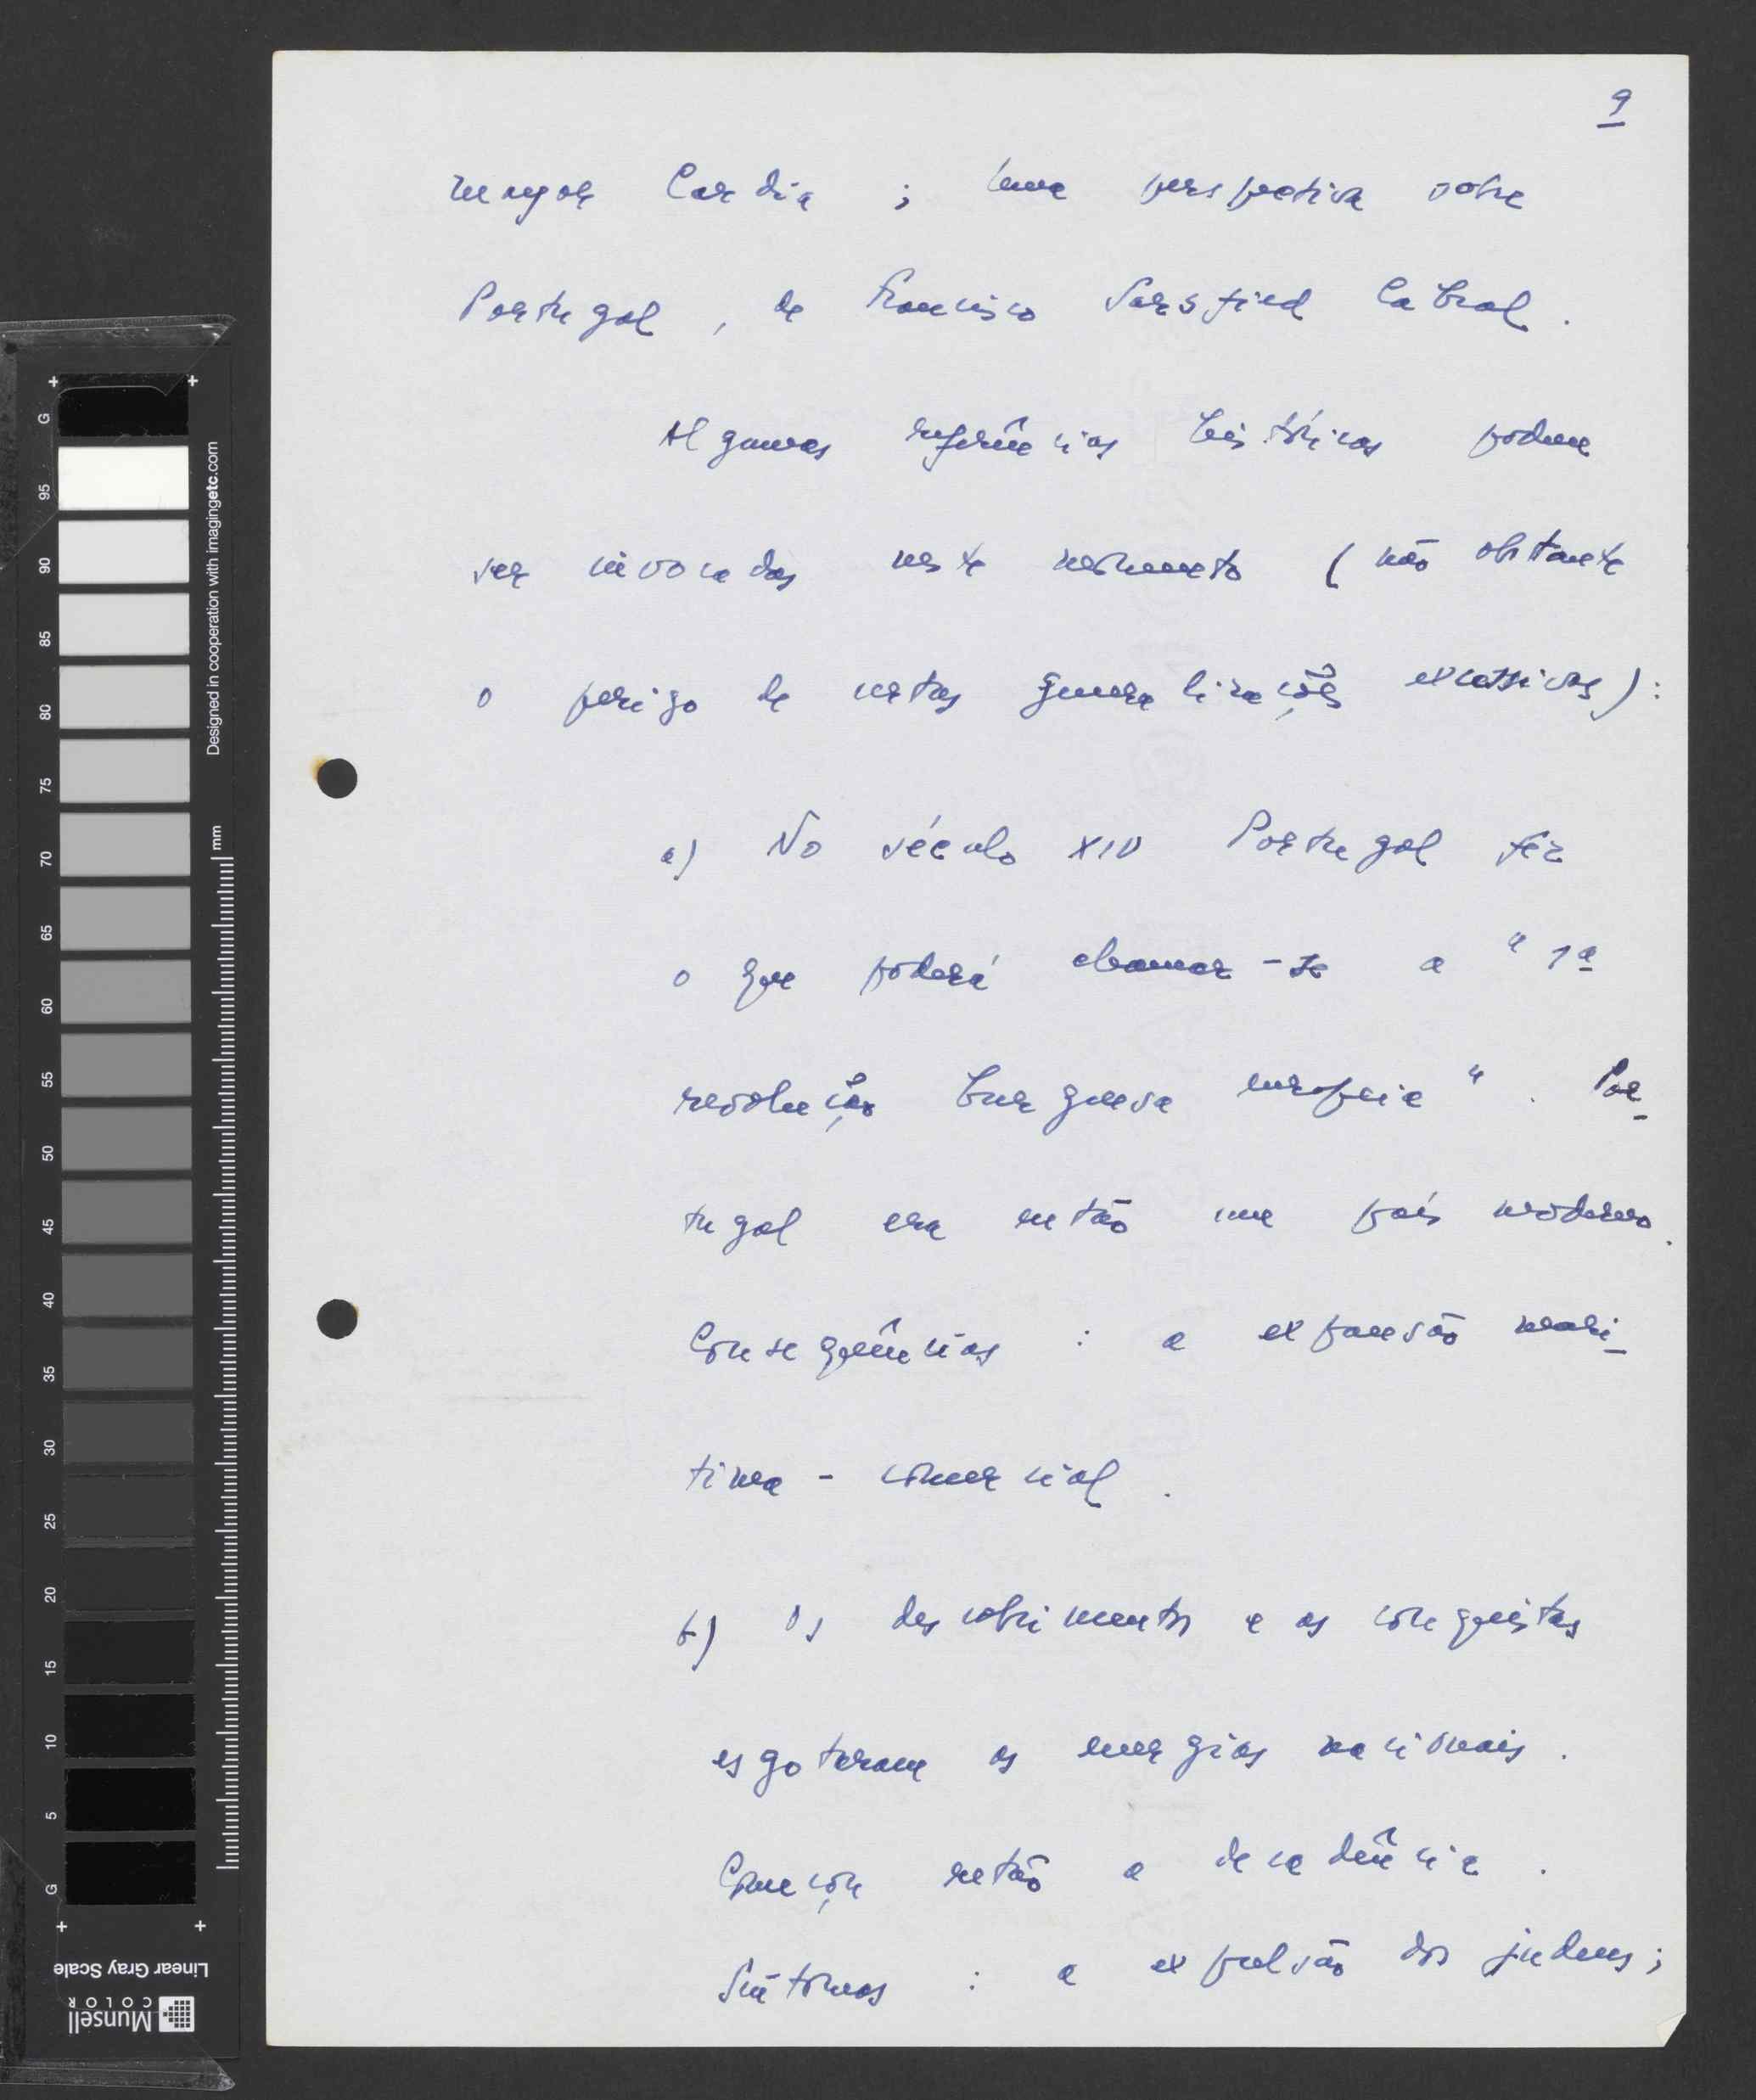 9
ungos Cardia ; Uma perspectiva sobre
Portugal , de Francisco Sarsfied Cabral .
Algumas referências históricas podem
ser invocadas neste momento ( não obstante
o perigo de certas generalizações excessivas ) :
a) No século XIV Portugal fez
o que poderá chamar-se a " 1ª
revolução burguesa europeia " . Por-
tugal era então um país moderno .
Consequências : a expansão marí-
tima - comercial .
b) Os descobrimentos e as conquistas
esgotaram as energias nacionais .
Começou então a decadência .
Sintomas : a expulsão dos judeus ;
G
95
90
85
80
75
70
65
60
55
50
45
40
35
30
25
20
15
10
5
G
mm
Designed in cooperation with imagingetc.com
Linear Gray Scale
Munsell
COLOR